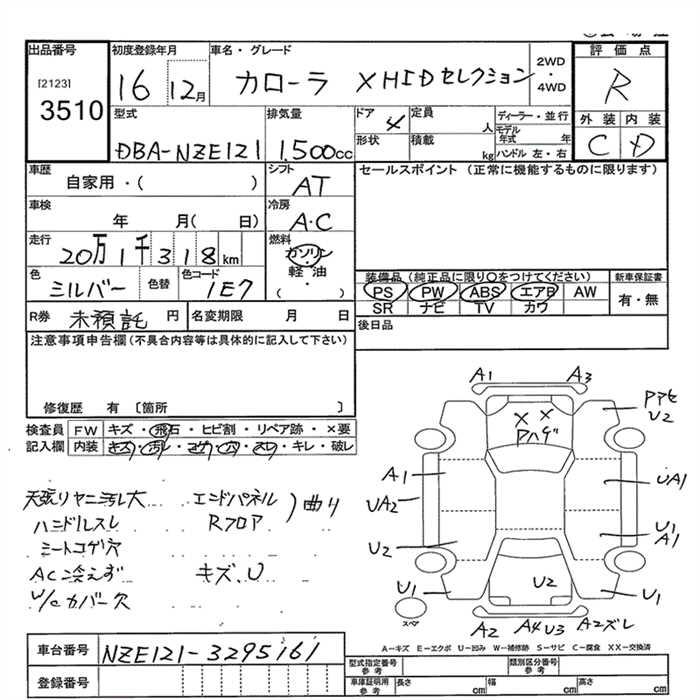 出品番号
[2123]
3510
初度登録年月
16 12月
車名・グレード
カローラ X HIDセレクション
2WD
・
4WD
評価点
R
外装 内装
C D
型式
DBA-NZE121
排気量
1,500cc
ドア 4
形状
定員 人
積載 kg
ディーラー・並行
モデル年式 年
ハンドル 左・右
車歴
自家用・( )
シフト
AT
セールスポイント (正常に機能するものに限ります)
車検
年 月( 日)
冷房
A・C
走行
20万1千318km
燃料
ガソリン
・
軽油
( )
色
シルバー
色替
色コード
1E7
装備品(純正品に限り○をつけてください)
PS PW ABS エアB AW
SR ナビ TV カワ
新車保証書
有・無
R券 未預託 円
名変期限 月 日
後日品
注意事項申告欄(不具合内容等は具体的に記入して下さい)
修復歴 有 〔箇所 〕
検査員
記入欄
FW キズ・飛石・ヒビ割・リペア跡・×要
内装 キズ・汚れ・コゲ・穴・スレ・キレ・破レ
天張リヤニ汚レ大
ハンドルスレ
シートコゲ穴
AC冷えず
W/Cカバー欠
エンドパネル
Rフロア
)曲り
キズ、U
A1 A3
Pアセ
U2
X X
Pハゲ
A1
UA2
U2
U1
UA1
U1
A1
U1
U2
スペア
A2 A4 U3 A2ズレ
A-キズ E-エクボ U-凹み W-補修跡 S-サビ C-腐食 XX-交換済
車台番号
NZE121-3295161
登録番号
型式指定番号
参考
類別区分番号
参考
車庫証明用
参考
長さ cm 幅 cm 高さ cm